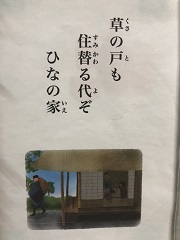 草の戸も
住替る代ぞ
ひなの家